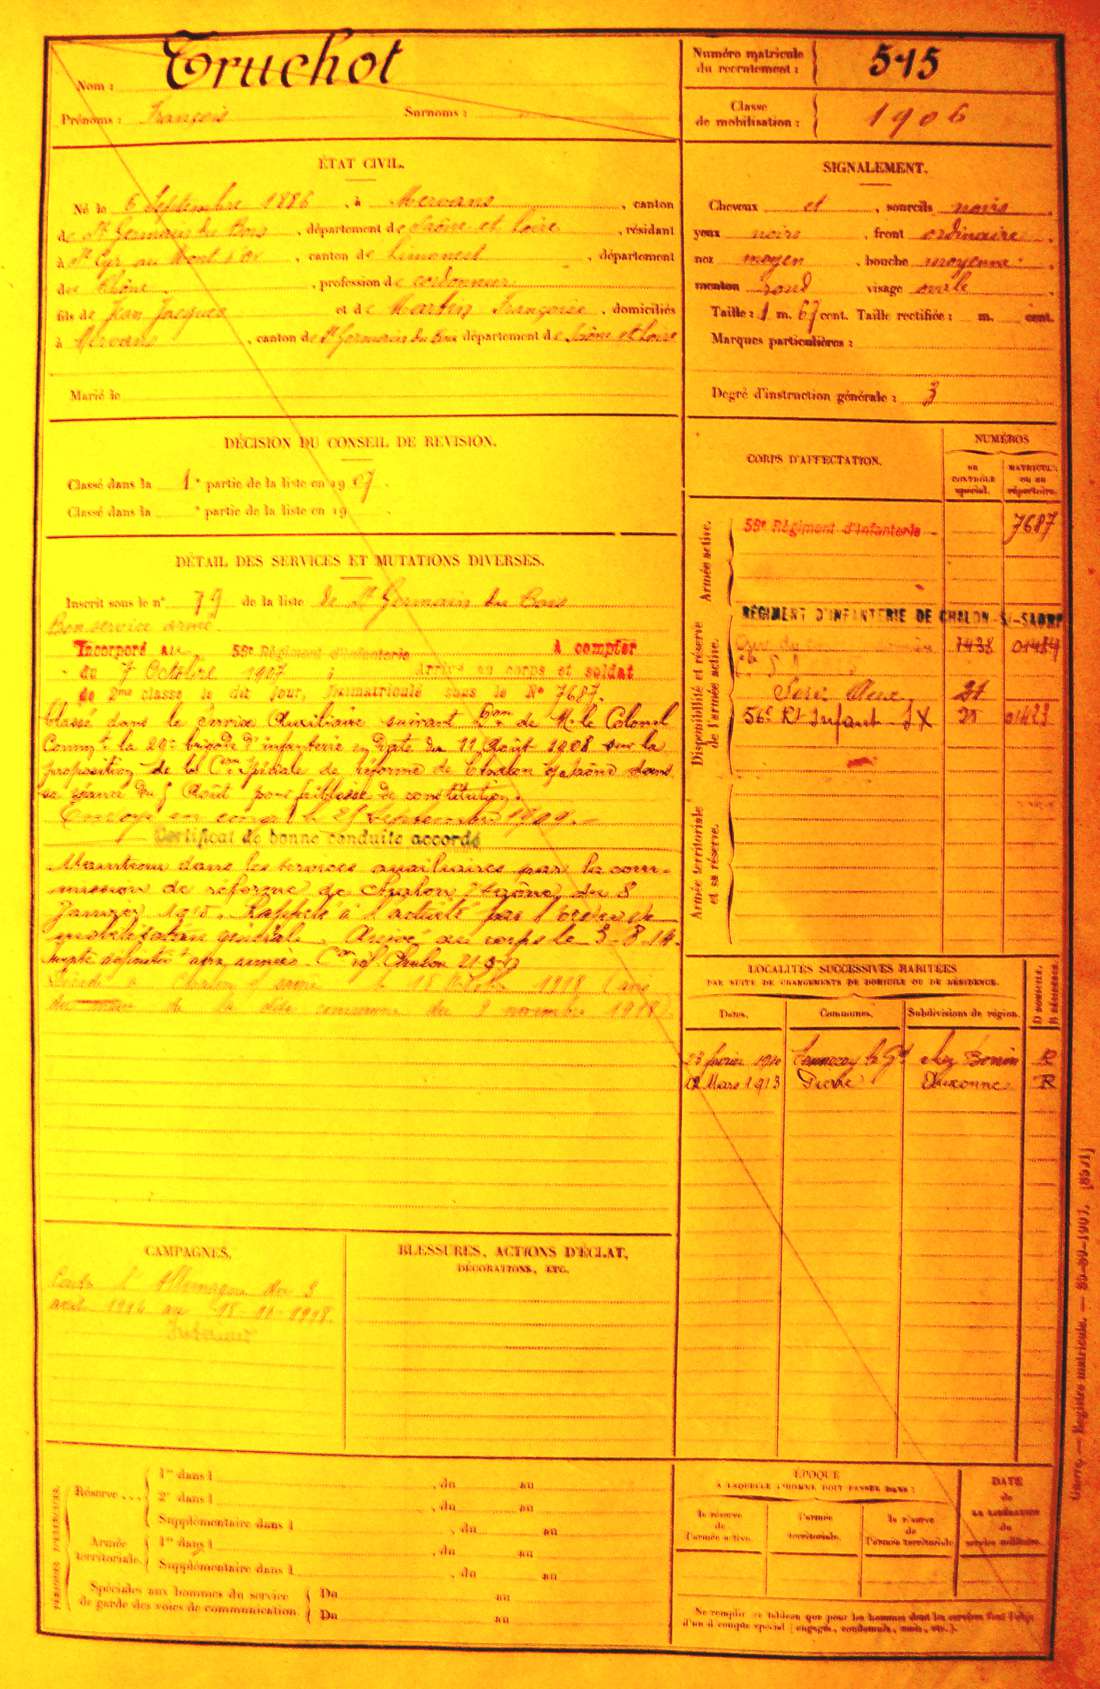 Nom : Truchot
Prénoms : François Surnoms :
Numéro matricule du recrutement : 515
Classe de mobilisation : 1906
ÉTAT CIVIL.
Né le 6 Septembre 1886, à Mervans, canton
de St Germain du Bois, département de Saône et Loire, résidant
à St Cyr au Mont d'or, canton de Limonest, département
du Rhône, profession de cordonnier
fils de Jean Jacques et de Martin Françoise, domiciliés
à Mervans, canton de St Germain du Bois département de Saône et Loire
Marié le
SIGNALEMENT.
Cheveux et, sourcils noirs,
yeux noirs, front ordinaire,
nez moyen, bouche moyenne,
menton rond visage ovale
Taille : 1 m. 67 cent. Taille rectifiée : m. cent.
Marques particulières :
Degré d'instruction générale : 3
DÉCISION DU CONSEIL DE REVISION.
Classé dans la 1e partie de la liste en 1907.
Classé dans la e partie de la liste en 19
DÉTAIL DES SERVICES ET MUTATIONS DIVERSES.
Inscrit sous le n° 79 de la liste de St Germain du Bois
Bon service armé
Incorporé au 56e Régiment d'infanterie À compter
du 7 Octobre 1907 ; arrivé au corps et soldat
de 2me classe le dit jour, Immatriculé sous le No 7687.
Classé dans le Service Auxiliaire suivant Don de Mr le Colonel
Commt la 29e brigade d'infanterie en date du 11 Août 1908 sur la
proposition de la Con Spéciale de réforme de Chalon s/ Saône dans
sa séance du 5 Août pour faiblesse de constitution.
Envoyé en congé le 25 Septembre 1909.
Certificat de bonne conduite accordé
Maintenu dans les services auxiliaires par la com-
mission de réforme de Chalon s/ Saône du 8
Janvier 1915. Rappelé à l'activité par l'ordre de
mobilisation générale. Arrivé au corps le 3-8-14.
Con Chalon
Décédé à Chalon s/ Saône le 18 Octobre 1918 (avis
du maire de la dite commune du 2 novembre 1918)
CORPS D'AFFECTATION.
NUMÉROS
AU CONTRÔLE spécial.
MATRICULE OU AU répertoire.
Armée active.
56e Régiment d'Infanterie 7687
Disponibilité et réserve de l'armée active.
RÉGIMENT D'INFANTERIE DE CHALON-S/-SAONE
1438 01484
Serv. Auxe 21
56e Rt Infant
Armée territoriale et sa réserve.
LOCALITÉS SUCCESSIVES HABITÉES
PAR SUITE DE CHANGEMENTS DE DOMICILE OU DE RÉSIDENCE.
Dates. Communes. Subdivisions de région. Domicile. Résidence.
23 février 1910 le Gd chez Bonin R
12 Mars 1913 Auxonne R
CAMPAGNES.
Contre l'Allemagne du 3
août 1914 au 18-10-1918.
Intérieur
BLESSURES, ACTIONS D'ÉCLAT,
DÉCORATIONS, ETC.
PÉRIODES D'EXERCICES.
Réserve ...
1re dans l , du au
2e dans l , du au
Supplémentaire dans l , du au
Armée territoriale.
1re dans l , du au
Supplémentaire dans l , du au
Spéciales aux hommes du service
de garde des voies de communication
Du au
Du au
ÉPOQUE
À LAQUELLE L'HOMME DOIT PASSER DANS :
la réserve de l'armée active.
l'armée territoriale.
la réserve de l'armée territoriale
DATE de LA LIBÉRATION du service militaire.
Ne remplir ce tableau que pour les hommes dont les services font l'objet
d'un décompte spécial (engagés, condamnés, omis, etc.).
Guerre. — Registre matricule. — 1907.